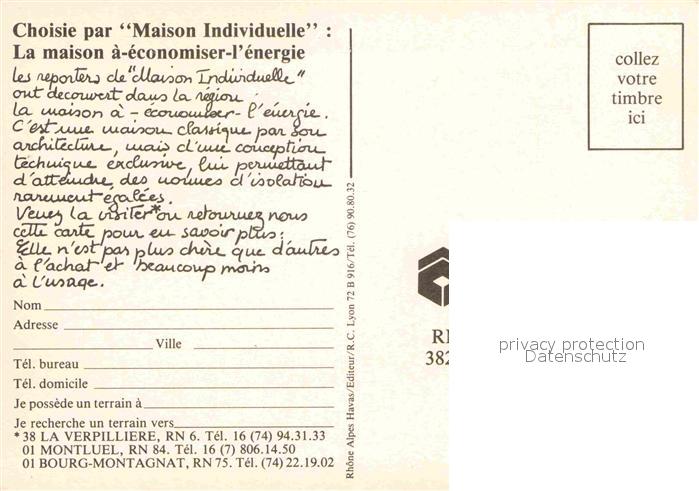 Choisie par “Maison Individuelle” :
La maison à-économiser-l’énergie
les reporters de "Maison Individuelle"
ont decouvert dans la région :
la maison à - économiser - l'énergie.
C'est une maison classique par son
architecture, mais d'une conception
technique exclusive, lui permettant
d'atteindre des normes d'isolation
rarement égalées.
Venez la visiter* ou retournez nous
cette carte pour en savoir plus:
Elle n'est pas plus chère que d'autres
à l'achat et beaucoup moins
à l'usage.
Nom
Adresse
Ville
Tél. bureau
Tél. domicile
Je possède un terrain à
Je recherche un terrain vers
*38 LA VERPILLIERE, RN 6. Tél. 16 (74) 94.31.33
01 MONTLUEL, RN 84. Tél. 16 (7) 806.14.50
01 BOURG-MONTAGNAT, RN 75. Tél. (74) 22.19.02
Rhône Alpes Havas/Editeur/R.C. Lyon 72 B 916/Tél. (76) 90.80.32
collez
votre
timbre
ici
382
privacy protection
Datenschutz